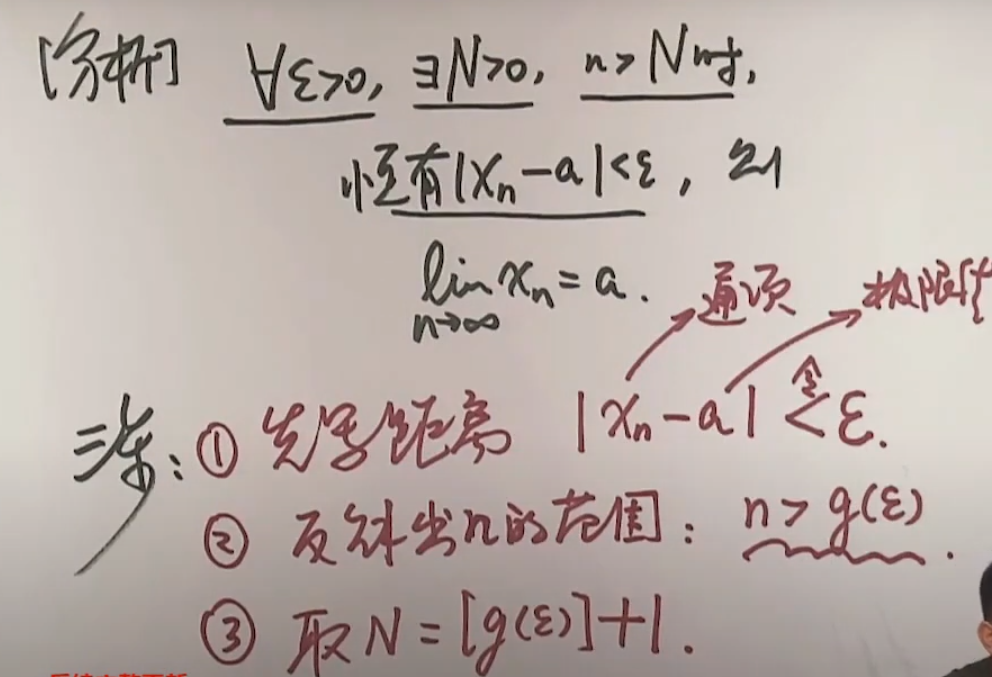 [分析] ∀ε>0, ∃N>0, n>N时,
恒有|xₙ-a|<ε, 则
lim xₙ=a.
n→∞
通项 极限
三步: ① 先写距离 |xₙ-a| 令< ε.
② 反解出n的范围: n>g(ε).
③ 取N=[g(ε)]+1.